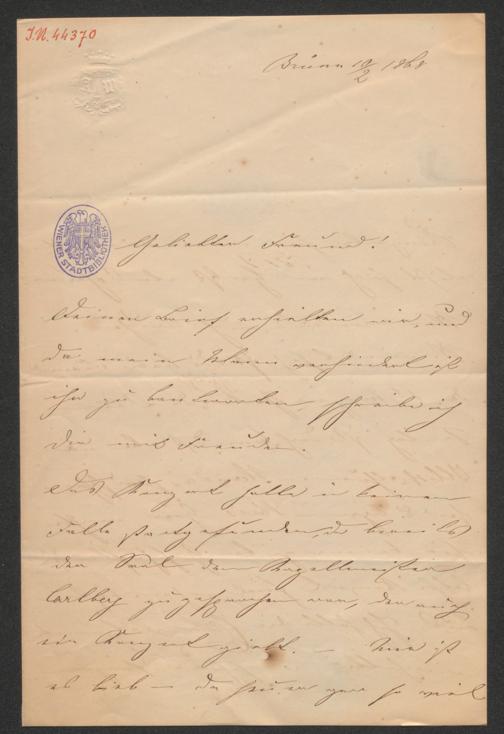 I.N. 44370
Brünn 10/2 1868
WIENER STADTBIBLIOTHEK
Geliebter Freund!
Deinen Brief erhielten wir, und
da mein Mann verhindert ist
ihn zu beantworten, schreibe ich
Dir mit Freuden.
Das Konzert hätte in keinem
Falle stattgefunden, da bereits
der Saal dem Kapellmeister
Carlberg zugesprochen war, der auch
ein Konzert giebt. – Mir ist
es lieb – da heuer gar so viel